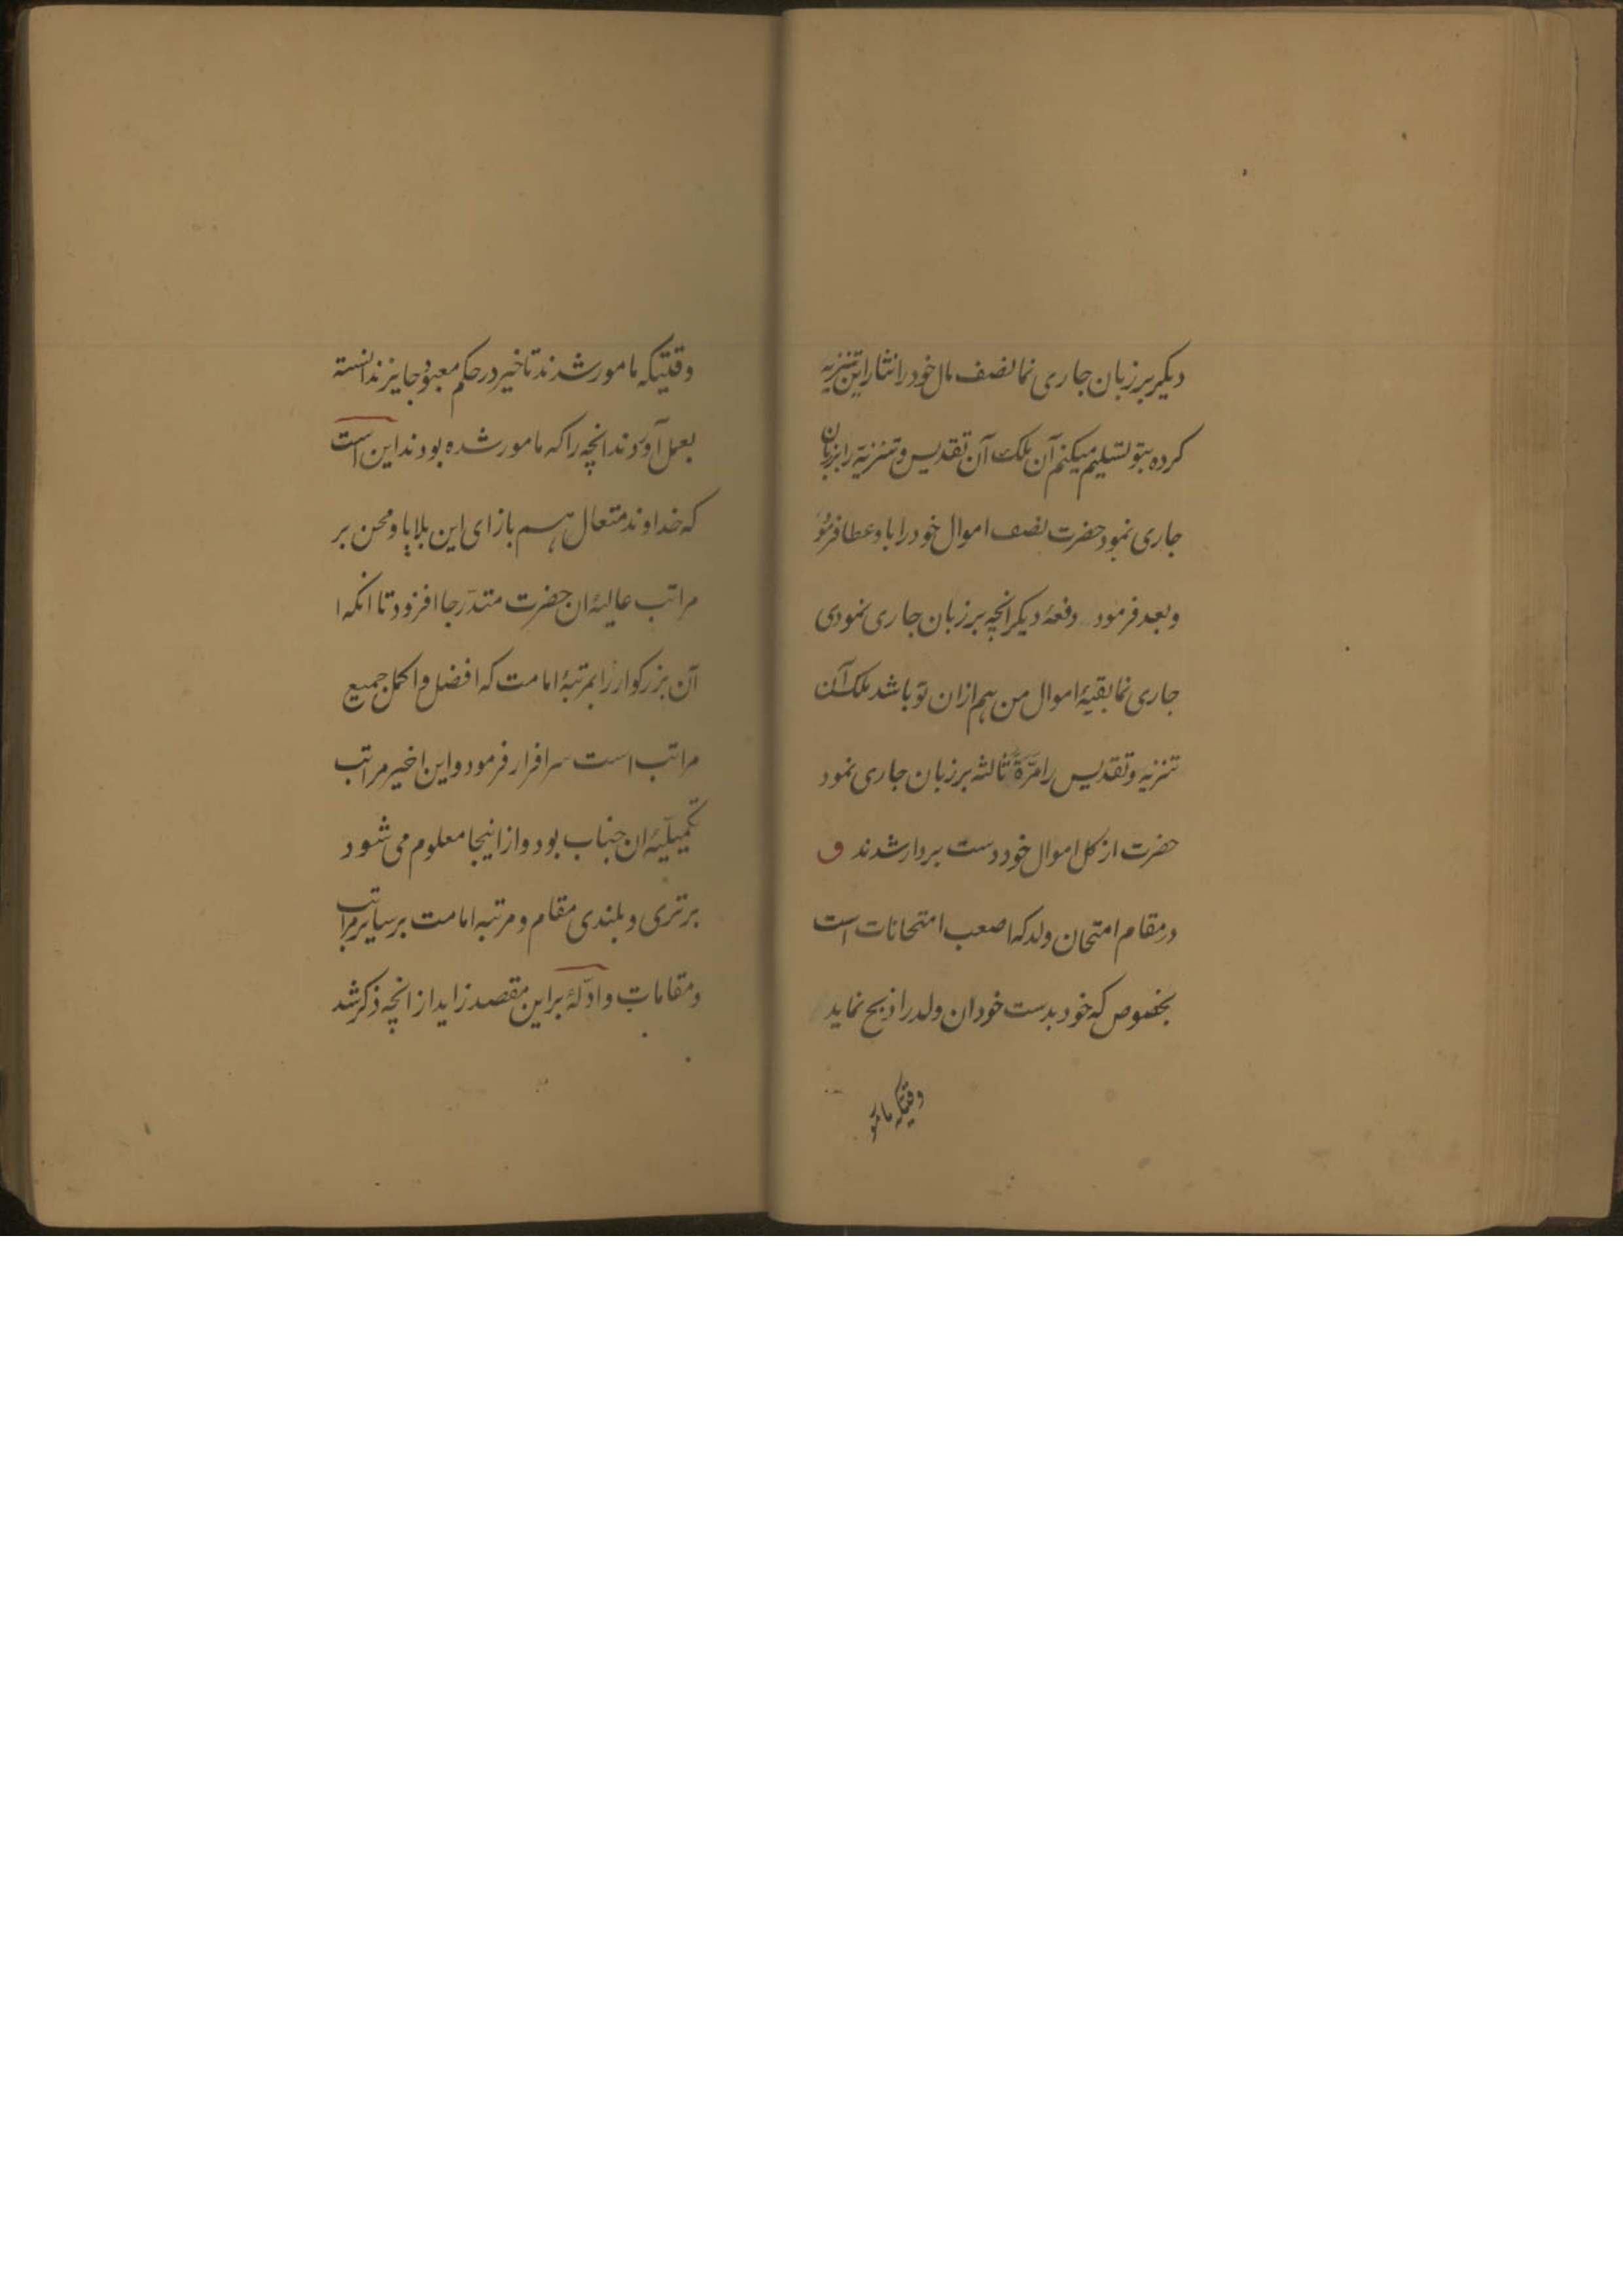 دیکر بر زبان جاری نما نصف مال خود را نثار این تنزیه
کرده بتو تسلیم میکنم آن ملک آن تقدیس و تنزیه را بزبان
جاری نمود حضرت نصف اموال خود را باو عطا فرمود
و بعد فرمود دفعهٔ دیکر انچه بر زبان جاری نمودی
جاری نما بقیهٔ اموال من هم از ان تو باشد ملک آن
تنزیه و تقدیس را مرّةً ثالثه بر زبان جاری نمود
حضرت از کل اموال خود دست بردار شدند و
در مقام امتحان ولد که اصعب امتحانات است
بخصوص که خود بدست خود ان ولد را ذبح نماید
وقتیکه مامو
وقتیکه مامور شدند تاخیر در حکم معبود جایز ندانسته
بعمل آوردند انچه را که مامور شده بودند این است
که خداوند متعال هم بازای این بلایا و محن بر
مراتب عالیهٔ ان حضرت متدرّجا افزود تا انکه ا
آن بزرکوار را بمرتبهٔ امامت که افضل و اکمل جمیع
مراتب است سرافراز فرمود و این اخیر مراتب
تکمیلیّهٔ ان جناب بود و از اینجا معلوم می شود
برتری و بلندی مقام و مرتبه امامت بر سایر مراتب
و مقامات و ادلّهٔ بر این مقصد زاید از انچه ذکر شد